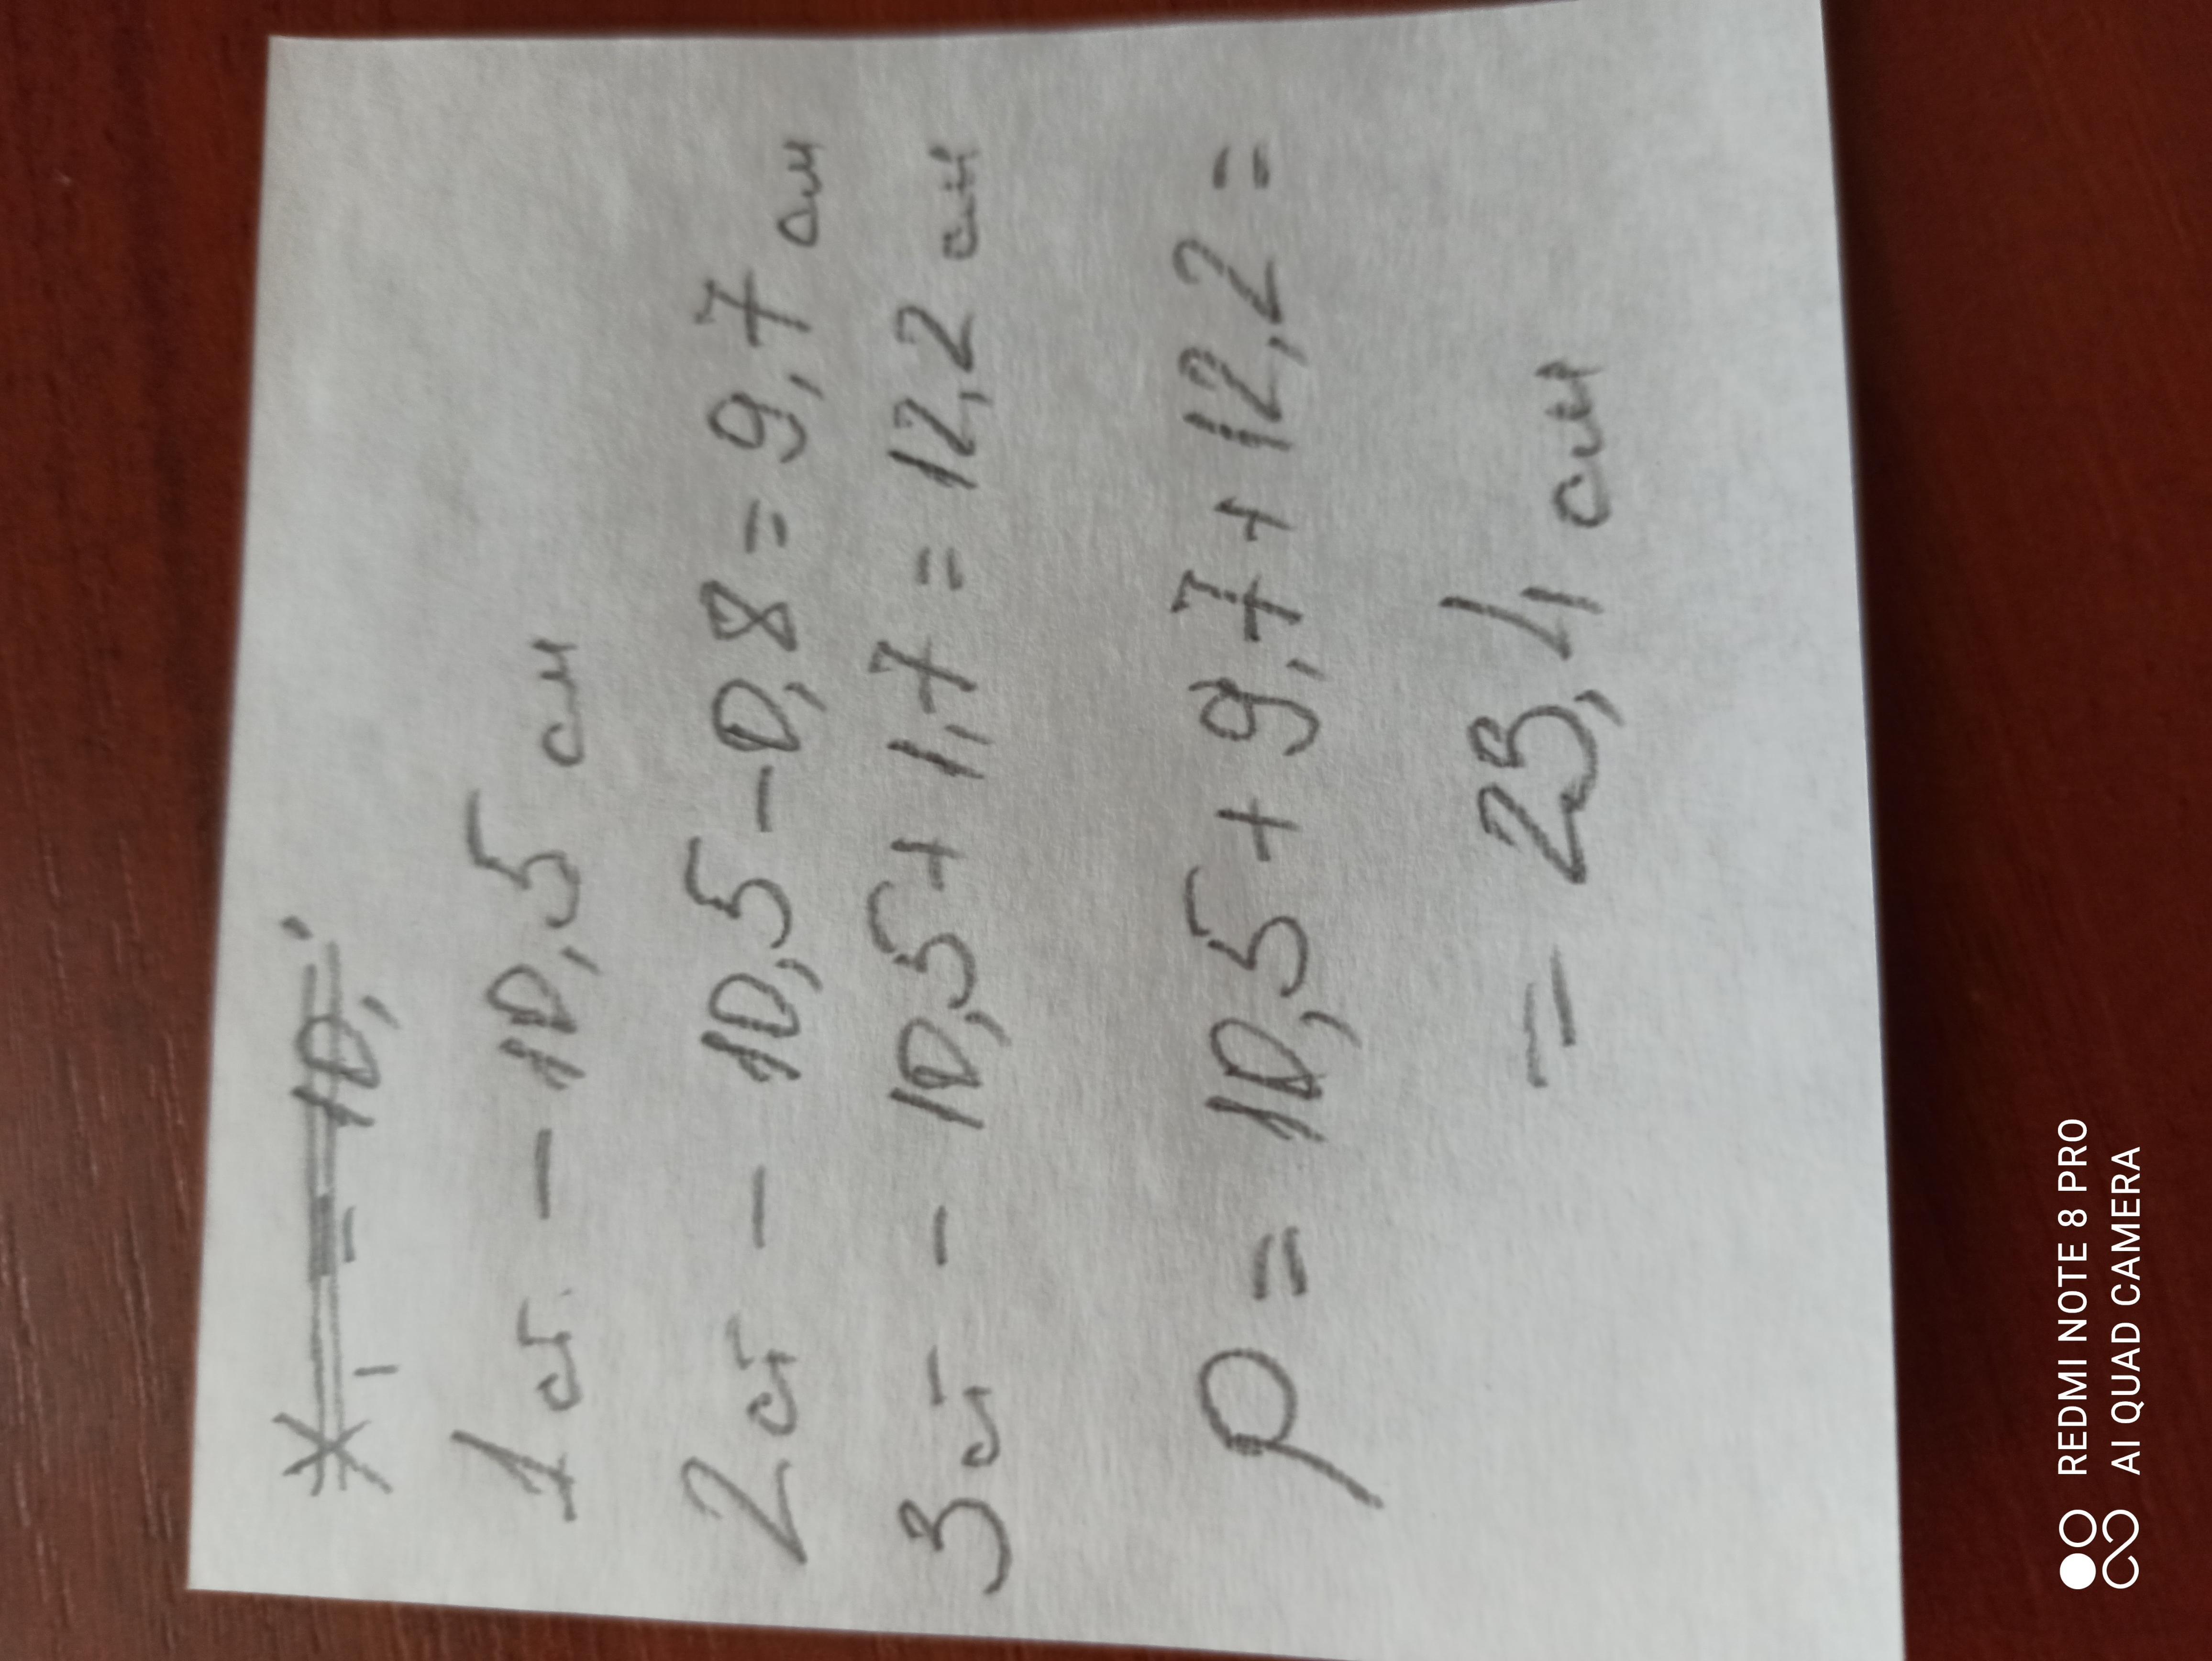 1 ст. - 10,5 см
2 ст - 10,5 - 0,8 = 9,7 см
3 ст - 10,5 + 1,7 = 12,2 см
P = 10,5 + 9,7 + 12,2 =
= 23,4 см
REDMI NOTE 8 PRO
AI QUAD CAMERA